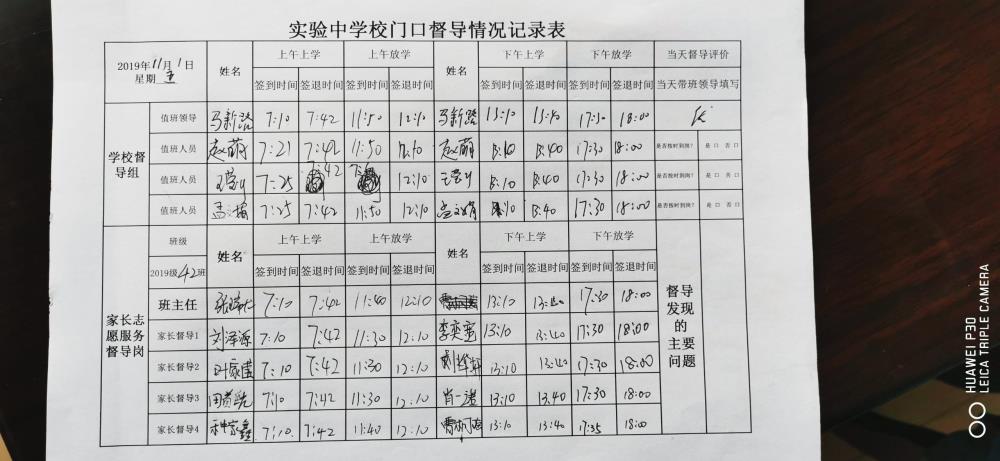 实验中学校门口督导情况记录表
2019年11月1日
星期五
姓名 上午上学 上午放学 姓名 下午上学 下午放学 当天督导评价
签到时间 签退时间 签到时间 签退时间 签到时间 签退时间 签到时间 签退时间 当天带班领导填写
学校督导组
值班领导 7:10 7:42 11:50 12:10 18:00
值班人员 赵萌 7:21 7:42 11:50 12:10 赵萌 17:30 18:00 是否按时到岗? 是口 否口
值班人员 7:25 7:42 12:10 17:30 18:00 是否按时到岗? 是口 否口
值班人员 7:25 7:42 11:50 12:10 17:30 18:00 是否按时到岗? 是口 否口
家长志愿服务督导岗
班级 姓名 上午上学 上午放学 姓名 下午上学 下午放学 督导发现的主要问题
2019级42班 签到时间 签退时间 签到时间 签退时间 签到时间 签退时间 签到时间 签退时间
班主任 7:10 7:42 11:40 12:10 13:10 13:40 17:30 18:00
家长督导1 刘泽源 7:10 7:42 11:30 12:10 13:10 13:40 17:30 18:00
家长督导2 7:10 7:42 11:30 12:10 13:10 13:40 17:30 18:00
家长督导3 7:10 7:42 11:30 12:10 肖一诺 13:10 13.40 17:30 18:00
家长督导4 7:10 7:42 11:40 12:10 13:10 13:40 17:35 18:00
HUAWEI P30
LEICA TRIPLE CAMERA